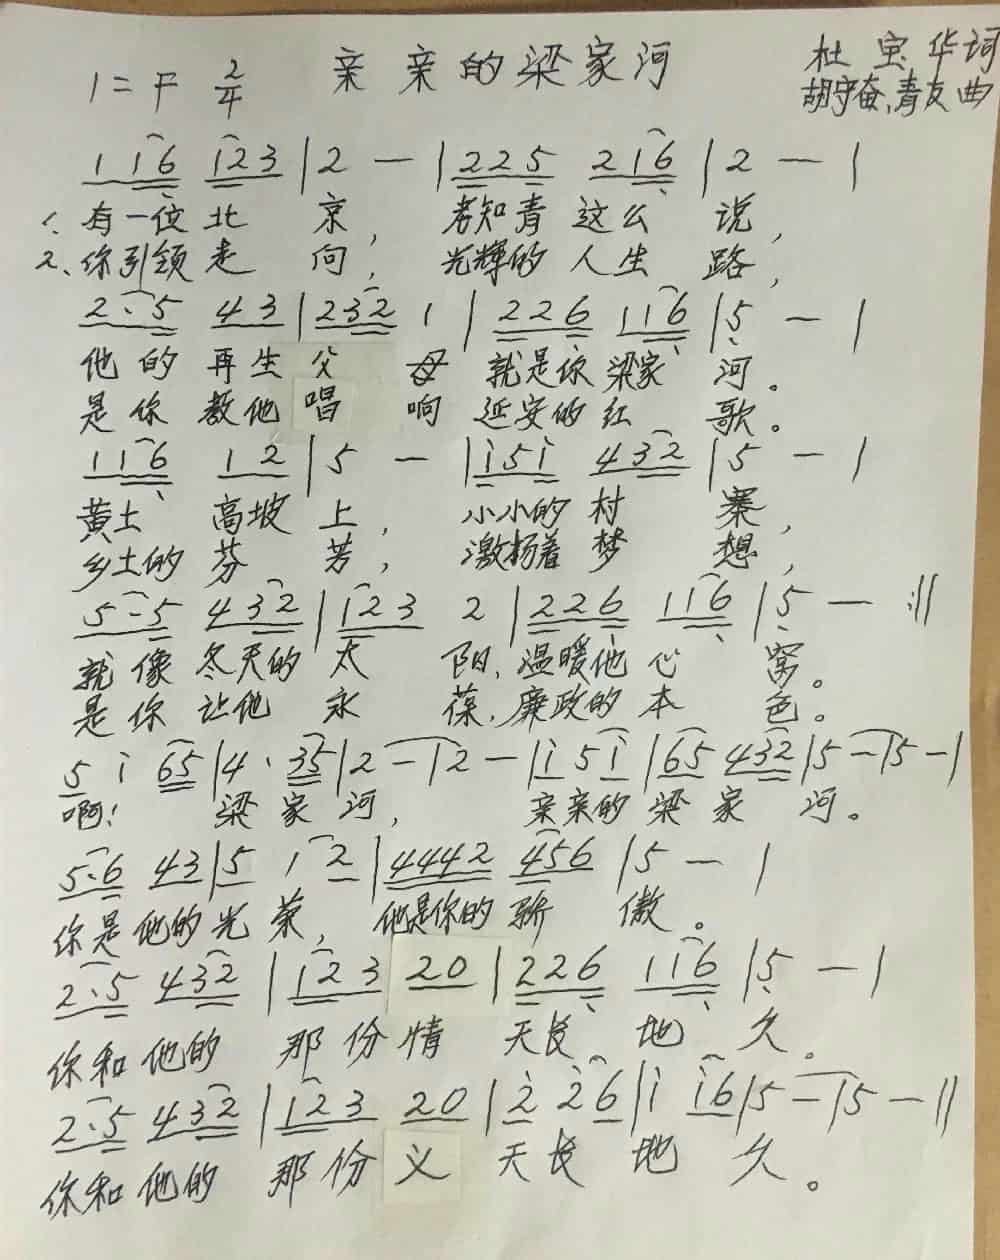 亲亲的梁家河
杜宝华词
1=F 2/4
胡守奋、青友曲
1 1 6 1 2 3 | 2 — | 2 2 5 2 1 6 | 2 — |
1、有一位北京，老知青这么说，
2、你引领走向，光輝的人生路，
2·5 4 3 | 2 3 2 1 | 2 2 6 1 1 6 | 5 — |
他的再生父母就是你梁家河。
是你教他唱响延安的红歌。
1 1 6 1 2 | 5 — | i 5 i 4 3 2 | 5 — |
黄土高坡上，小小的村寨，
乡土的芬芳，激扬着梦想，
5·5 4 3 2 | 1 2 3 2 | 2 2 6 1 1 6 | 5 — :||
就像冬天的太阳，温暖他心窝。
是你让他永葆，廉政的本色。
5 i 6 5 | 4 · 3 5 | 2 — | 2 — | i 5 i | 6 5 4 3 2 | 5 — | 5 — |
啊！梁家河，亲亲的梁家河。
5·6 4 3 | 5 1 2 | 4 4 4 2 4 5 6 | 5 — |
你是他的光荣，他是你的骄傲。
2·5 4 3 2 | 1 2 3 2 0 | 2 2 6 1 1 6 | 5 — |
你和他的那份情天长地久。
2·5 4 3 2 | 1 2 3 2 0 | 2 2 6 | i i 6 | 5 — | 5 — ||
你和他的那份义天长地久。